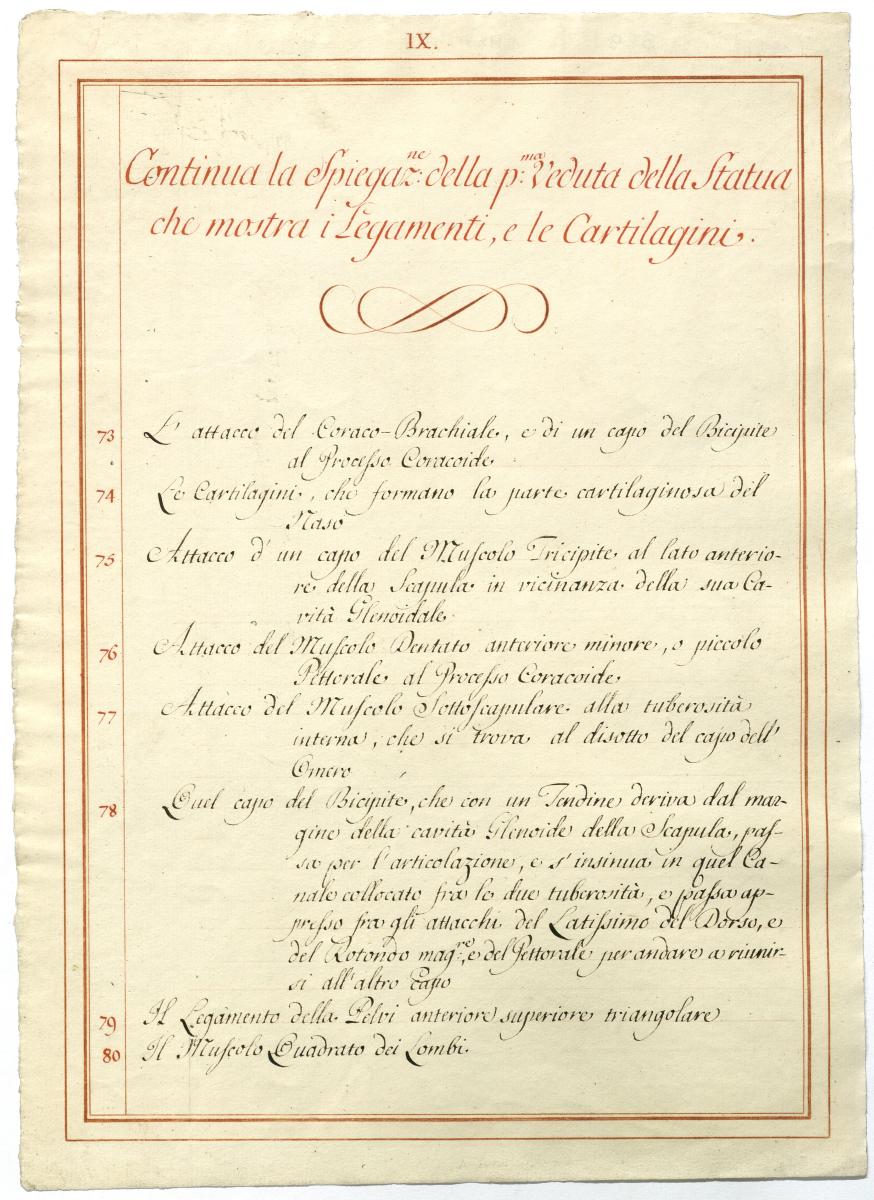 IX.
Continua la Spiegaz.ne della p.ma Veduta della Statua
che mostra i Legamenti, e le Cartilagini.
73 L' attacco del Coraco-Brachiale, e di un capo del Bicipite
al Processo Coracoide
74 Le Cartilagini, che formano la parte cartilaginosa del
Naso
75 Attacco d' un capo del Muscolo Tricipite al lato anterio-
re della Scapula in vicinanza della sua Ca-
vità Glenoidale
76 Attacco del Muscolo Dentato anteriore minore, o piccolo
Pettorale al Processo Coracoide
77 Attacco del Muscolo Sottoscapulare alla tuberosità
interna, che si trova al disotto del capo dell'
Omero
78 Quel capo del Bicipite, che con un Tendine deriva dal mar-
gine della cavità Glenoide della Scapula, pas-
sa per l'articolazione, e s'insinua in quel Ca-
nale collocato fra le due tuberosità, e passa ap-
presso fra gli attacchi del Latissimo del Dorso, e
del Rotondo mag.re, e del Pettorale per andare a riunir-
si all'altro Capo
79 Il Legamento della Pelvi anteriore superiore triangolare
80 Il Muscolo Quadrato dei Lombi.